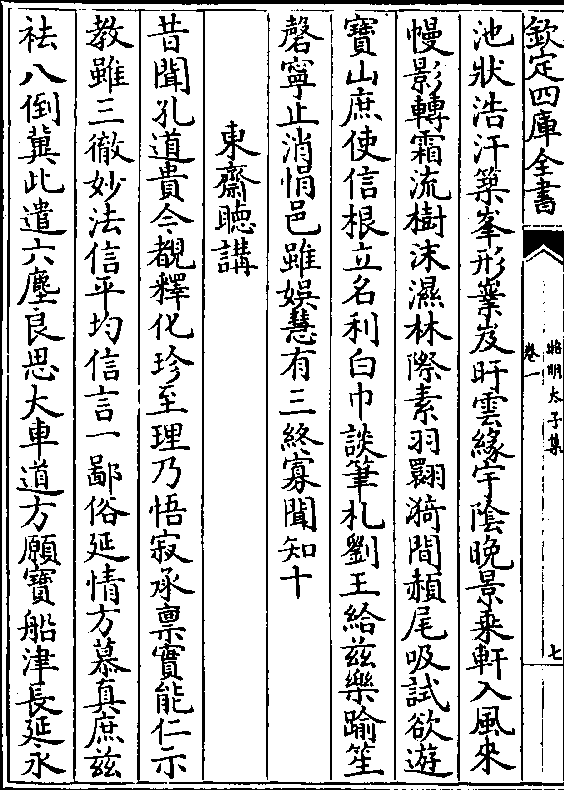 欽定四庫全書
昭明太子集
卷一
七
池狀浩汗築峯形嶪岌旰雲緣宇陰晚景乗軒入風來
幔影轉霜流樹沫濕林際素羽翾漪間赬尾吸試欲遊
寶山庶使信根立名利白巾談筆札劉王給兹樂踰笙
磬寧止消悁邑雖娯慧有三終寡聞知十
東齋聽講
昔聞孔道貴今覩釋化珍至理乃悟寂承禀實能仁示
教雖三徹妙法信平均信言一鄙俗延情方慕真庶兹
祛八倒冀此遣六塵良思大車道方願寶船津長延永